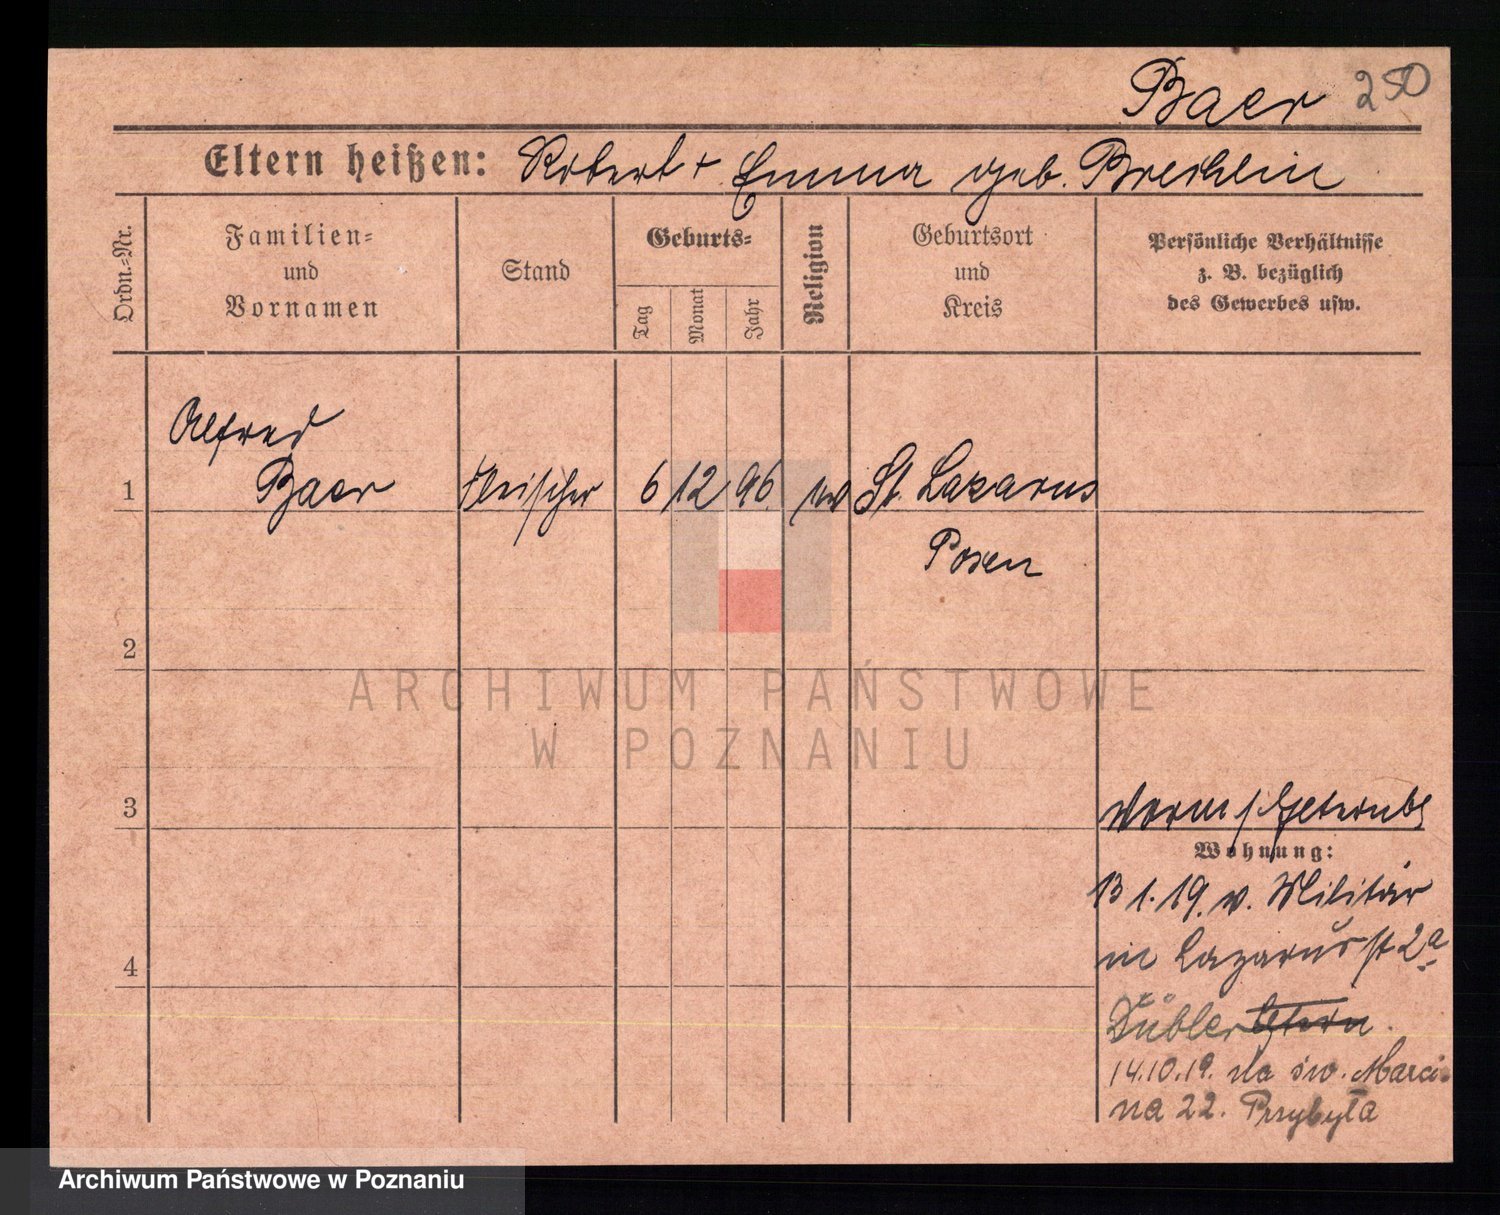 Baer 250
Eltern heißen: Robert + Emma geb. Brechlin
Ordn.-Nr.
Familien-
und
Vornamen
Stand
Geburts-
Tag
Monat
Jahr
Religion
Geburtsort
und
Kreis
Persönliche Verhältnisse
z. B. bezüglich
des Gewerbes usw.
Alfred
1 Baer Fleischer 6 12 96 ev St. Lazarus
Posen
2
ARCHIWUM PAŃSTWOWE
W POZNANIU
3
Wohnung:
13 1. 19. v. Militär
in Lazarusst 2a
4
Dübler Eltern.
14.10.19. na św. Marci-
na 22. Przybyła
Archiwum Państwowe w Poznaniu